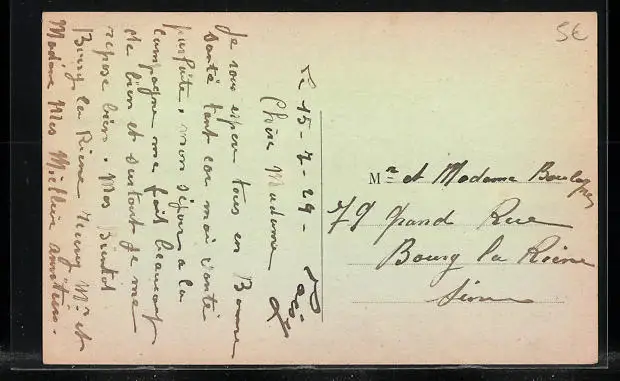 Le 15-7-29-
Chère Madame
Je vous espère tous en Bonne
santé tant con moi santé
parfaite, mon séjour a la
campagne me fait beaucoup
de bien et surtout je me
repose bien. Mes Bientot
Bourg la Reine Mr et
Madame Mes Meilleurs amitiers.
5€
Mr et Madame
79 grand Rue
Bourg la Reine
Seine